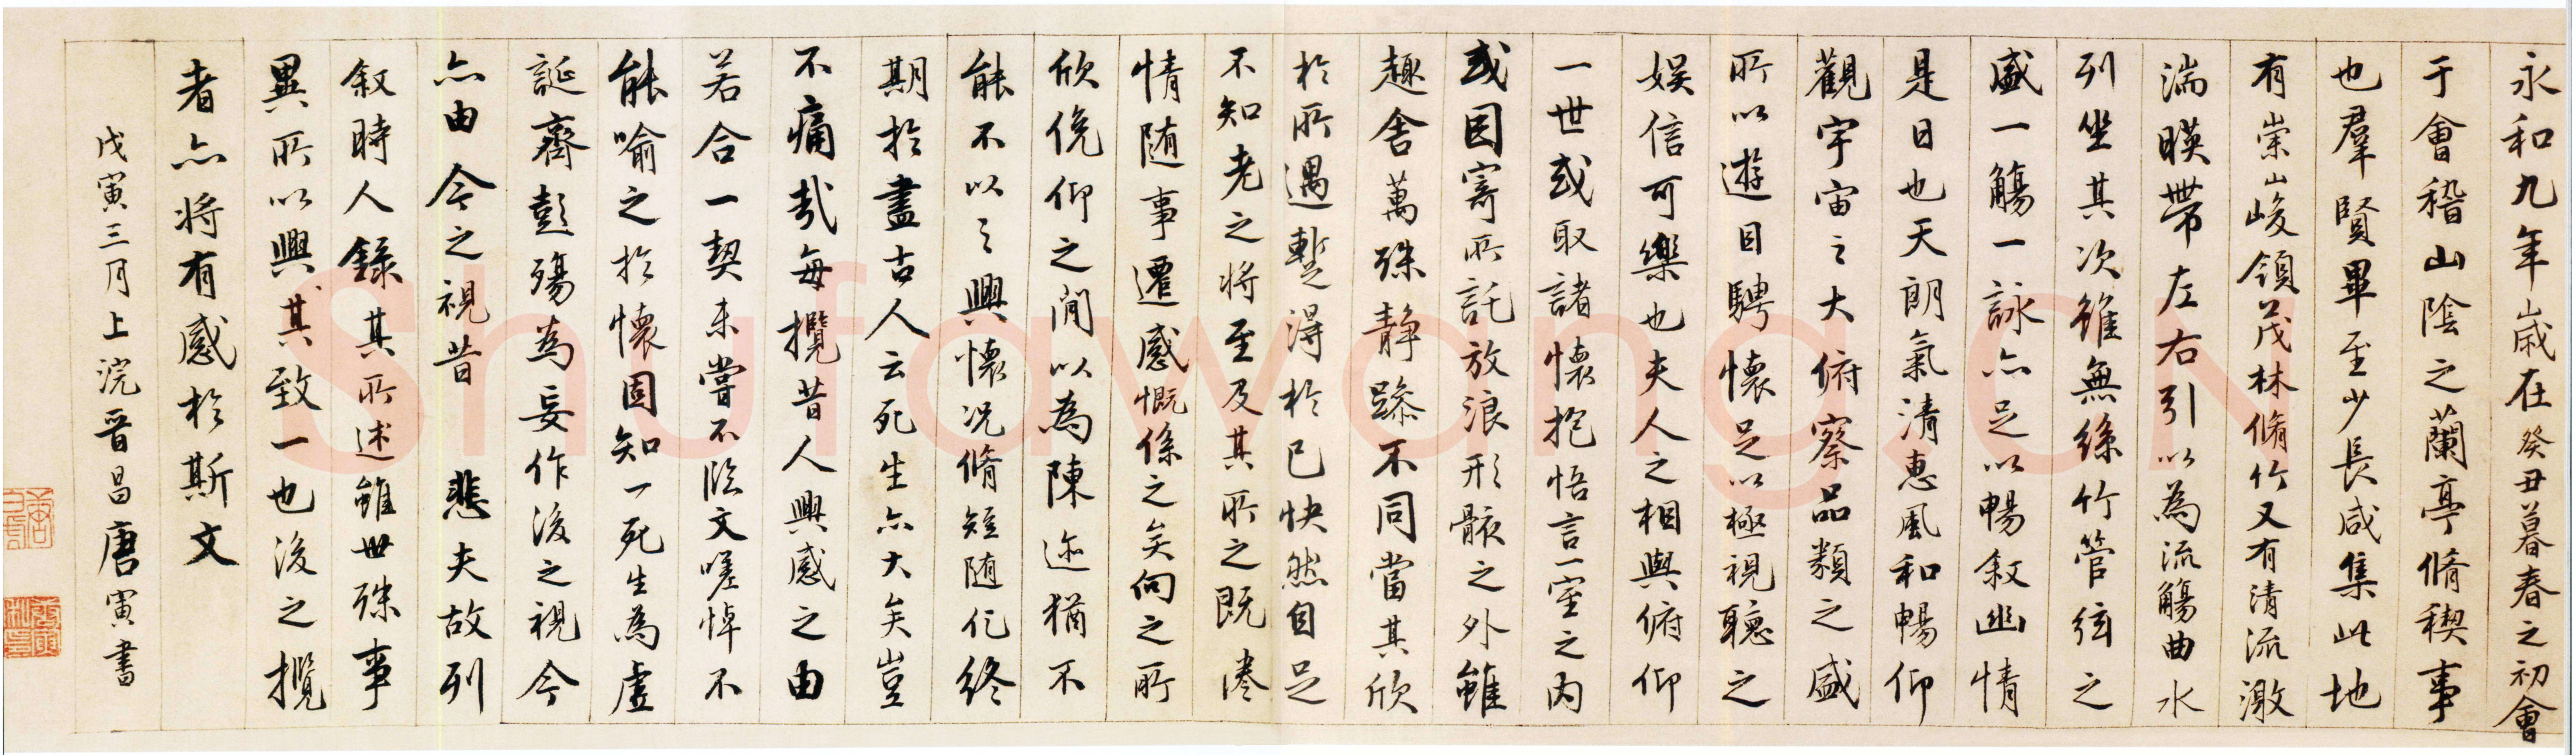 永和九年歲在癸丑暮春之初會
于會稽山陰之蘭亭脩稧事
也羣賢畢至少長咸集此地
有崇山峻領茂林脩竹又有清流激
湍暎帶左右引以為流觴曲水
列坐其次雖無絲竹管弦之
盛一觴一詠亦足以暢敘幽情
是日也天朗氣清惠風和暢仰
觀宇宙之大俯察品類之盛
所以遊目騁懷足以極視聽之
娛信可樂也夫人之相與俯仰
一世或取諸懷抱悟言一室之內
或因寄所託放浪形骸之外雖
趣舍萬殊靜躁不同當其欣
於所遇蹔得於己快然自足
不知老之將至及其所之既惓
情隨事遷感慨係之矣向之所
欣俛仰之閒以為陳迹猶不
能不以之興懷況脩短隨化終
期於盡古人云死生亦大矣豈
不痛哉每攬昔人興感之由
若合一契未嘗不臨文嗟悼不
能喻之於懷固知一死生為虛
誕齊彭殤為妄作後之視今
亦由今之視昔 悲夫故列
敘時人錄其所述雖世殊事
異所以興其致一也後之攬
者亦將有感於斯文
戊寅三月上浣晉昌唐寅書
Shufawang.CN